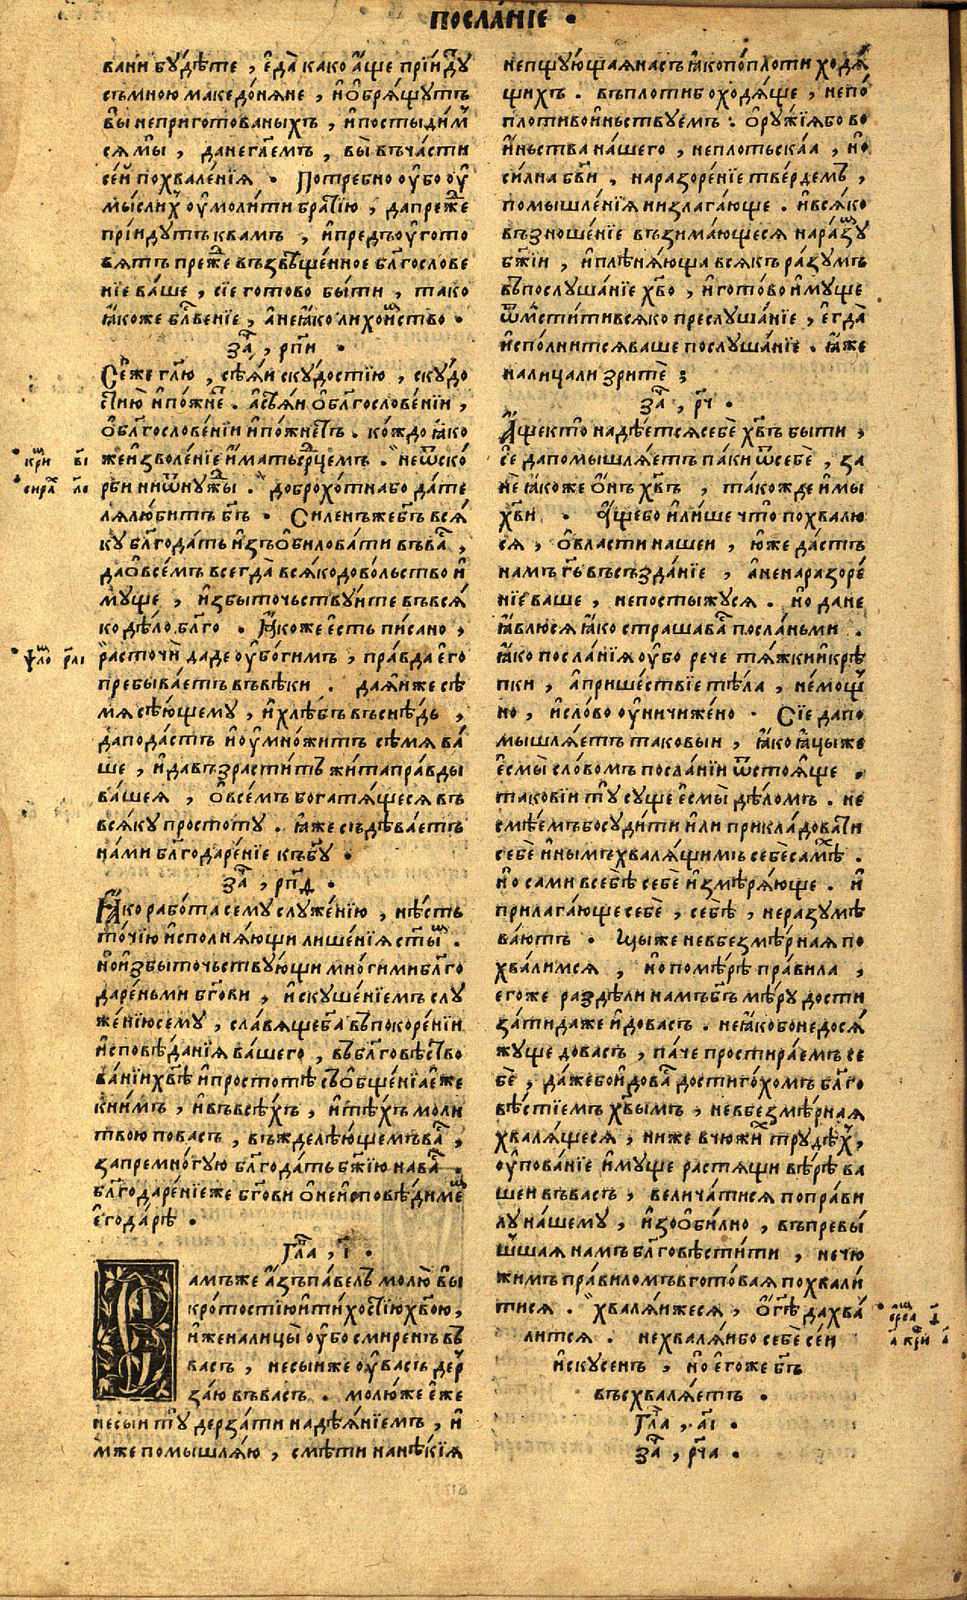 посла́нїе .
вани бу́дѣте , є҆да̀ како а҆́ще прїи́дꙋⷮ
съмною македо́нѧне , и҆ѻ҆брѧ́щутъ
вы̀ неприготованыхъ , и҆постыди́мⷭ
сѧ мы̀ , данегл҃емъ , вы̀ въча́сти
се́й похвале́нїѧ . Потребно оу҆́бо оу҆
мы́слиⷯ оу҆моли́ти бра́тїю , дапреⷤ́е
прїи́дутъ квамъ , и҆предъоу҆гото
вѧтъ преⷤ́е възвѣще́нное блⷢ҇ослове
нїе ва́ше , сїе гото́во бы́ти , тако
ꙗ҆́коже блⷭ҇ве́нїе , а҆неꙗ҆́ко лихои́мство .
заⷱ҇ , рпи .
Се́же гл҃ю , сѣ́ѧи ску́достїю , ску́до
стїю и҆по́жнеⷮ . асѣ́ѧи ѻ҆блⷢ҇ослове́нїи ,
ѻ҆блⷢ҇ослове́нїи и҆по́жнетъ . ко́ждо ꙗ҆́ко
жеи҆зволе́нїе и҆́матьсрⷣцемъ . неѿско́
рби ниѿну́жⷣы . доброхо́тнабо да́те
лѧлю́битъ бг҃ъ . Си́ленъжебг҃ъ всѧ́
ку блⷢ҇ода́ть и҆зъѻ҆билова́ти въваⷭ҇ ,
даѻ҆все́мъ всегда̀ всѧ́кодово́льство и҆
му́ще , и҆збы́точьствуите въвсѧ́
ко дѣ́ло блⷢ҇о . Ꙗ҆́коже є҆́сть пи́сано ,
расточѝ даде оу҆бо́гимъ , пра́вда є҆го̀
пребыва́етъ въвѣ́ки . даѧ́и же сѣ́
мѧ сѣ́ющему , и҆хлѣ́бъ въснѣ́дь ,
дапода́стъ и҆оу҆мно́житъ сѣ́мѧ ва́
ше , и҆давъзрасти́тъ жи́таправды
ва́шеѧ , ѻ҆все́мъ богатѧ́щесѧ въ
всѧ́ку простоту . ꙗ҆́же съдѣ́ваетъ
на́ми блⷢ҇одаре́нїе къбг҃у .
заⷱ҇ , рп҃д .
Ꙗ҆́ко рабо́та сему служе́нїю , нѣ́сть
то́чїю и҆сполнѧ́ющи лише́нїѧ ст҃ы́ⷯ .
но́и҆збы́точьству́ющи мно́гимиблⷢ҇о
даре́ньми бг҃ови , и҆скуше́нїемъ слу
же́нїюсему , сла́вѧщебг҃а въпокоре́нїи
и҆сповѣ́данїѧ ва́шего , въблⷢ҇овѣ́ство
ва́нїихв҃ѣ и҆простотѣ̀ съѻ҆бще́нїѧе҆́же
кни́мъ , и҆въвсѣ́хъ , и҆тѣ́хъ моли
твою повасъ , въжделѣ́ющемъваⷭ҇ ,
запремно́гую блⷢ҇ода́ть бж҃їю наваⷭ҇ .
блⷢ҇одаре́нїеже бг҃ови ѻ҆неи҆сповѣди́мѣⷨ
є҆года́рѣ .
Глава̀ , і҃ .
амъже а҆́зъпа́велъ молю̀ вы̀
кро́тостїюи҆ти́хостїюхв҃ою ,
и҆́женалицы̀ оу҆́бо смире́нъ въ
ва́съ , несы́иже оу҆ва́съ деръ
за́ю въва́съ . молю́же є҆́же
несы́и ту̀ дерза́ти надѣ́ѧнїемъ , и҆
мже помышлѧ́ю , смѣ́ти нанѣ́кїѧ
непщу́ющаѧна́съ ꙗ҆́копопло́ти ходѧ́
щихъ . въпло́тибоходѧ́ще , непо
пло́тивои́ньству́емъ . ѻ҆ружїѧбо во
и҆ньства на́шего , непло́тьскаа , но̀
си́лна бг҃ви , наразоре́нїе тверде́мъ ,
помышле́нїѧ низлага́юще . и҆всѧ́ко
възноше́нїе възима́ющеесѧ нара́зꙋⷨ
бж҃їи , и҆плѣнѧ́юща всѧ́къ ра́зумъ
въпослуша́нїе хв҃о , и҆гото́во и҆му́ще
ѿмсти́тивсѧ́ко преслуша́нїе , є҆гда̀
и҆спо́лнитсѧва́ше послуша́нїе . ꙗ҆́же
налица́ли зритѐ ;
заⷱ҇ , рч҃ .
А҆́щекто̀ надѣ́етсѧсебѐ хв҃ъ бы́ти ,
сѐ дапомышлѧ́етъ па́ки ѿсебѐ , за
нѐ ꙗ҆́коже ѻ҆́нъ хв҃ъ , та́кожде и҆мы
хв҃и . А҆́щебо и҆ли́ше что̀ похвалю
сѧ , ѻ҆вла́сти нашеи , ю҆́же да́стъ
намъ гь҃ въсъзда́нїе , а҆ненаразоре́
нїе ваше , непостыжу́сѧ . но дане
ꙗ҆влю́сѧ ꙗ҆́ко страша́ваⷭ҇ посла́ньми .
ꙗ҆́ко посла́нїѧ оу҆́бо рече тѧ́жки и҆крѣ́
пки , а҆прише́ствїе тѣ́ла , не́мощⷩ
но , и҆сло́во оу҆ничиже́но . Сїе дапо
мышлѧ́етъ таковы́и , ꙗ҆́ко ꙗ҆́цыже
є҆смы̀ сло́вомъ посла́нїи ѿстоѧ́ще .
такові́и ту̀ су́ще є҆смы̀ дѣ́ломъ . не
смѣ́емъбосуди́ти и҆ли прикла́довати
себѐ и҆нымъхвалѧ́щимъ себѐсамѣⷨ .
но сами всебѣ̀ себѐ и҆змѣрѧ́юще . и҆
прилага́юще себѐ , себѣ̀ , неразумѣ
ва́ютъ . Мы́же невбезмѣ́рнаѧ по
хва́лимсѧ , но помѣ́рѣ пра́вила ,
егоже раздѣли намъбг҃ъ мѣ́ру дости
за́тидаже и҆дова́съ . неꙗ҆́кобонедосѧ́
жуще дова́съ , па́че простира́емъ се
бѐ , да́жебои҆доваⷭ҇ достиго́хомъ блⷢ҇о
вѣ́стїемъ хв҃ымъ , невбезмѣ́рнаѧ
хвалѧ́щесѧ , ниже вчюжиⷯ тру́дѣⷯ ,
оу҆пова́нїе и҆му́ще растѧ́щи вѣ́рѣ ва
шеи въва́съ , велича́тисѧ поправи
лу на́шему , и҆зоби́лно , въпревы́
шшаѧ намъ блⷢ҇овѣсти́ти , нечю
жимъ пра́виломъвгото́ваѧ похвали́
тисѧ . хвалѧ́ижесѧ , ѻ҆гдⷭ҇ѣ да хва́
литсѧ . нехвалѧ́ибо себѐ сеи
и҆ску́сенъ , но̀ є҆го́же бг҃ъ
въсхвалѧ́етъ .
Глава̀ , а҃і .
заⷱ҇ , рч҃а .